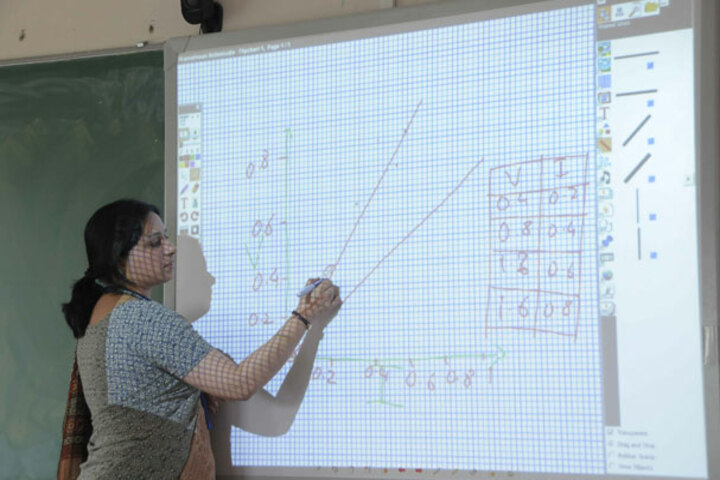 0.8
0.6
V
0.4
0.2
0.2 0.4 0.6 0.8 1
I
V I
0.4 0.2
0.8 0.4
0.6
1.6 0.8